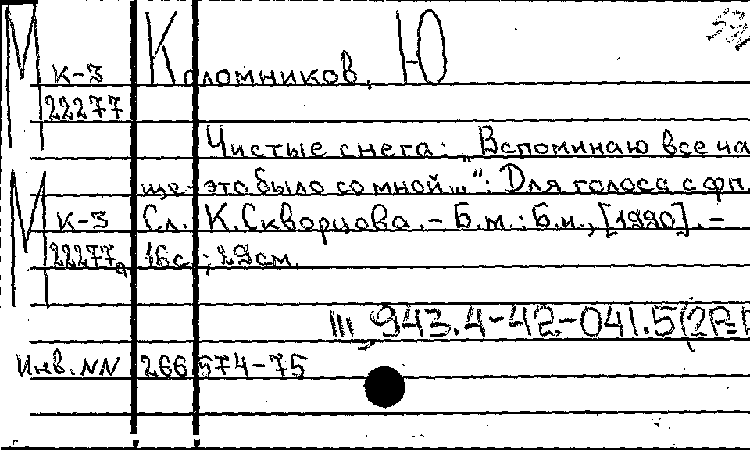 М К-3 Коломников, Ю
22277
Чистые снега: „Вспоминаю все ча
ще - это было со мной..." : Для голоса с фп.
М К-3 Сл. К. Скворцова. - Б.м. : Б.и., [1990]. -
22277а 16с.; 29см.
Ш 943.4-42-041.5(2Р=Р
Инв. NN 266574-75